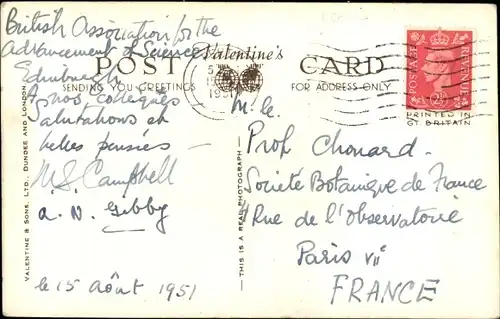 British Association for the
Advancement of Science
Edinburgh
A nos collègues
salutations et
belles pensées —
M.S. Campbell
A. N. Gibby
le 15 Août 1951
Valentine's
POST CARD
SENDING YOU GREETINGS
FOR ADDRESS ONLY
VALENTINE & SONS, LTD., DUNDEE AND LONDON.
— THIS IS A REAL PHOTOGRAPH —
POSTAGE
REVENUE
2½
PRINTED IN
GT. BRITAIN
M. le
Prof. Chouard.
Société Botanique de France
Rue de l'Observatoire
Paris VII
FRANCE